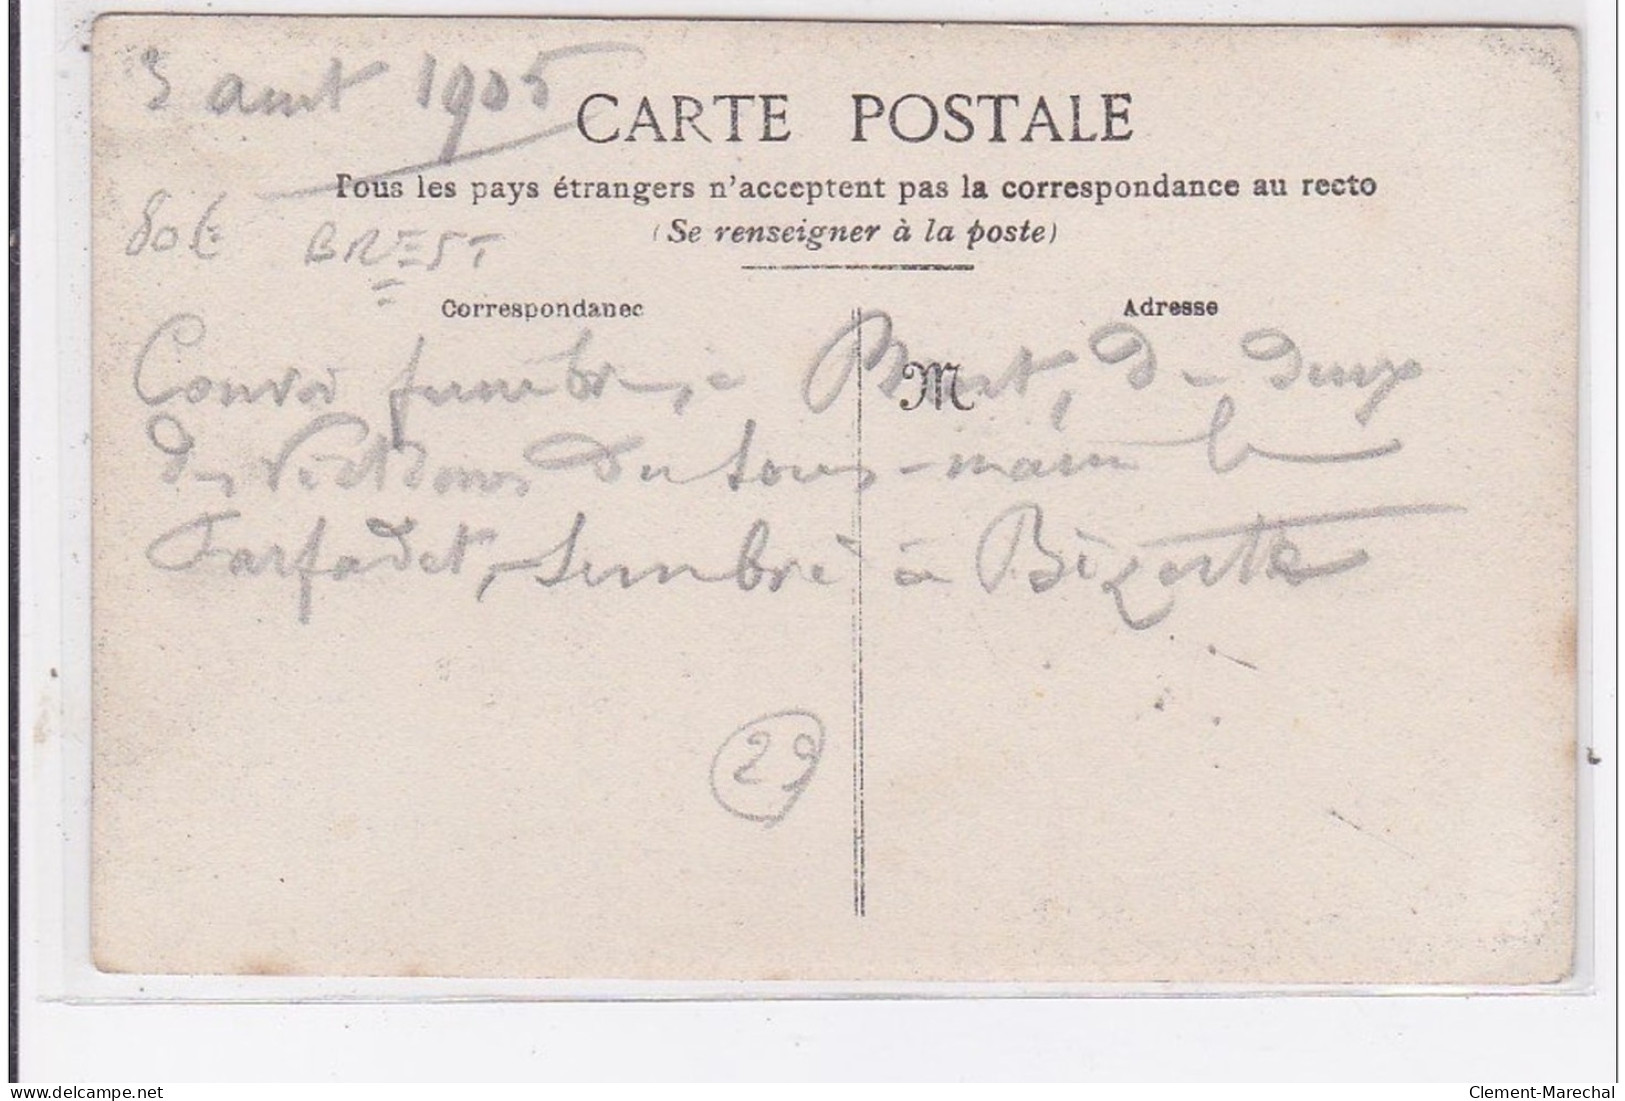 3 aout 1905
CARTE POSTALE
Tous les pays étrangers n'acceptent pas la correspondance au recto
(Se renseigner à la poste)
80€ BREST
Correspondanec
Adresse
M
Convoi funèbre, à Brest, de deux
des victimes du sous-marin le
Farfadet, sombré à Bizerte
29
www.delcampe.net
Clement-Marechal